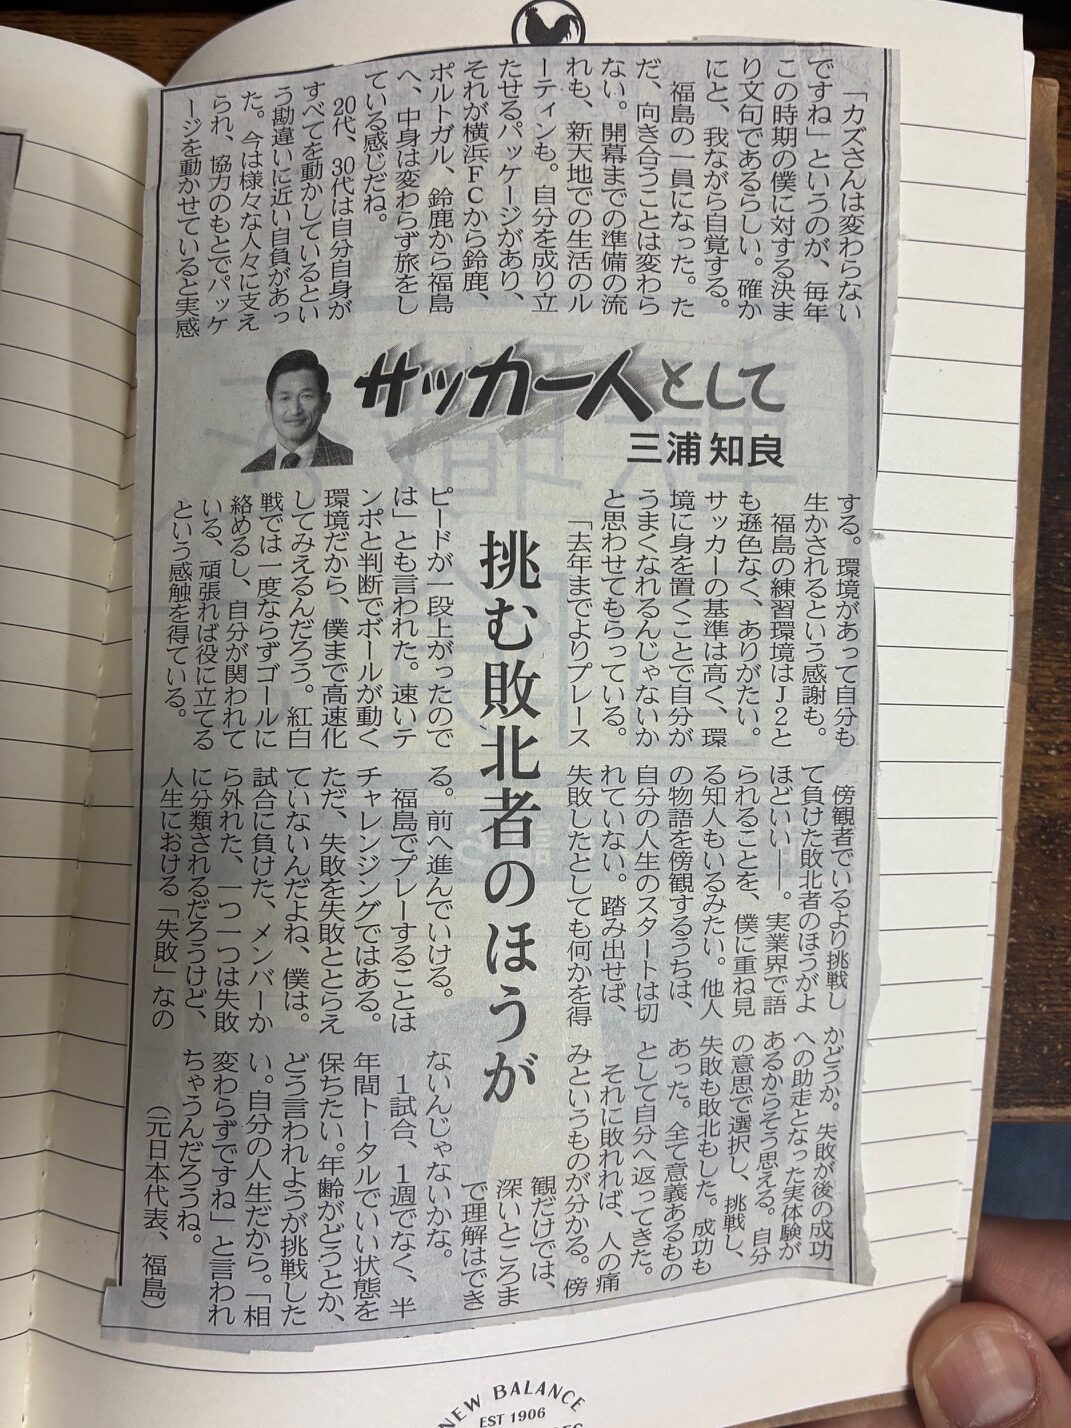 「カズさんは変わらない
ですね」というのが、毎年
この時期の僕に対する決ま
り文句であるらしい。確か
にと、我ながら自覚する。
福島の一員になった。た
だ、向き合うことは変わら
ない。開幕までの準備の流
れも、新天地での生活のル
ーティンも。自分を成り立
たせるパッケージがあり、
それが横浜FCから鈴鹿、
ポルトガル、鈴鹿から福島
へ、中身は変わらず旅をし
ている感じだね。
20代、30代は自分自身が
すべてを動かしているとい
う勘違いに近い自負があっ
た。今は様々な人々に支え
られ、協力のもとでパッケ
ージを動かせていると実感
サッカー人として
三浦知良
する。環境があって自分も
生かされるという感謝も。
福島の練習環境はJ2と
も遜色なく、ありがたい。
サッカーの基準は高く、環
境に身を置くことで自分が
うまくなれるんじゃないか
と思わせてもらっている。
「去年までよりプレース
挑む敗北者のほうが
ピードが一段上がったので
は」とも言われた。速いテ
ンポと判断でボールが動く
環境だから、僕まで高速化
してみえるんだろう。紅白
戦では一度ならずゴールに
絡めるし、自分が関われて
いる、頑張れば役に立てる
という感触を得ている。
傍観者でいるより挑戦し
て負けた敗北者のほうがよ
ほどいい――。実業界で語
られることを、僕に重ね見
る知人もいるみたい。他人
の物語を傍観するうちは、
自分の人生のスタートは切
れていない。踏み出せば、
失敗したとしても何かを得
る。前へ進んでいける。
福島でプレーすることは
チャレンジングではある。
ただ、失敗を失敗ととらえ
ていないんだよね、僕は。
試合に負けた、メンバーか
ら外れた、一つ一つは失敗
に分類されるだろうけど、
人生における「失敗」なの
かどうか。失敗が後の成功
への助走となった実体験が
あるからそう思える。自分
の意思で選択し、挑戦し、
失敗も敗北もした。成功も
あった。全て意義あるもの
として自分へ返ってきた。
それに敗れれば、人の痛
みというものが分かる。傍
観だけでは、
深いところま
で理解はでき
ないんじゃないかな。
1試合、1週でなく、半
年間トータルでいい状態を
保ちたい。年齢がどうとか、
どう言われようが挑戦した
い。自分の人生だから。「相
変わらずですね」と言われ
ちゃうんだろうね。
（元日本代表、福島）
NEW BALANCE
EST 1906